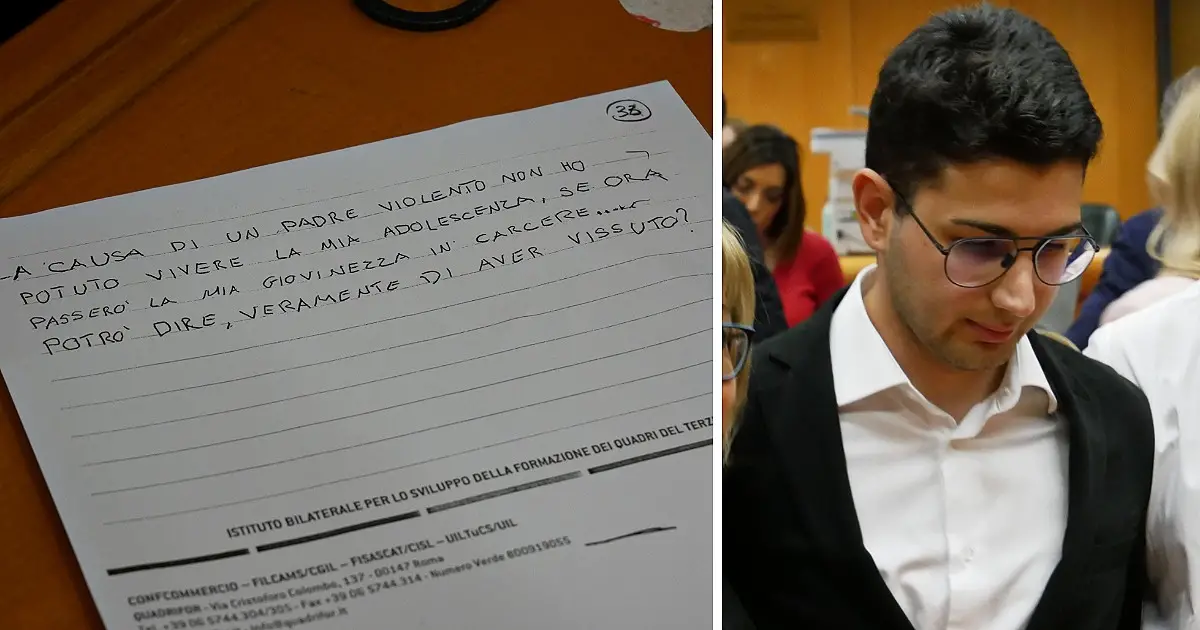 38
A CAUSA DI UN PADRE VIOLENTO NON HO
POTUTO VIVERE LA MIA ADOLESCENZA, SE ORA
PASSERO' LA MIA GIOVINEZZA IN CARCERE....
POTRO' DIRE, VERAMENTE DI AVER VISSUTO?
ISTITUTO BILATERALE PER LO SVILUPPO DELLA FORMAZIONE DEI QUADRI DEL TERZ
CONFCOMMERCIO – FILCAMS/CGIL – FISASCAT/CISL – UILTuCS/UIL
QUADRIFOR - Via Cristoforo Colombo, 137 - 00147 Roma
Tel. +39 06 5744.304/305 - Fax +39 06 5744.314 - Numero Verde 800919055
info@quadrifor.it